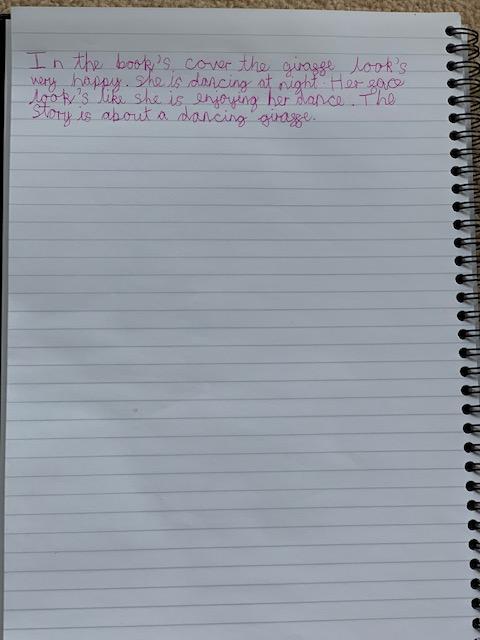 In the book's cover the giraffe look's
very happy. she is dancing at night. Her face
look's like she is enjoying her dance. The
Story is about a dancing giraffe.